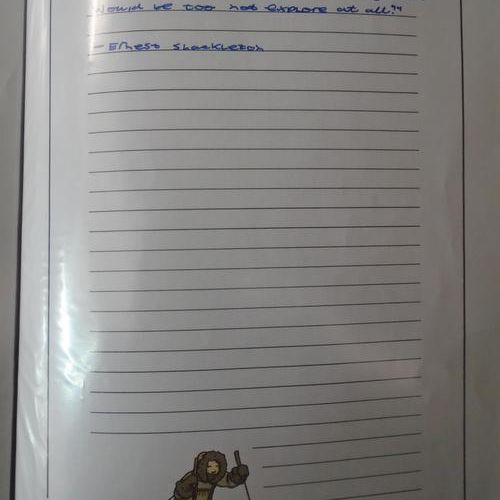 Would be too not explore at all?"
- Ernest Shackleton